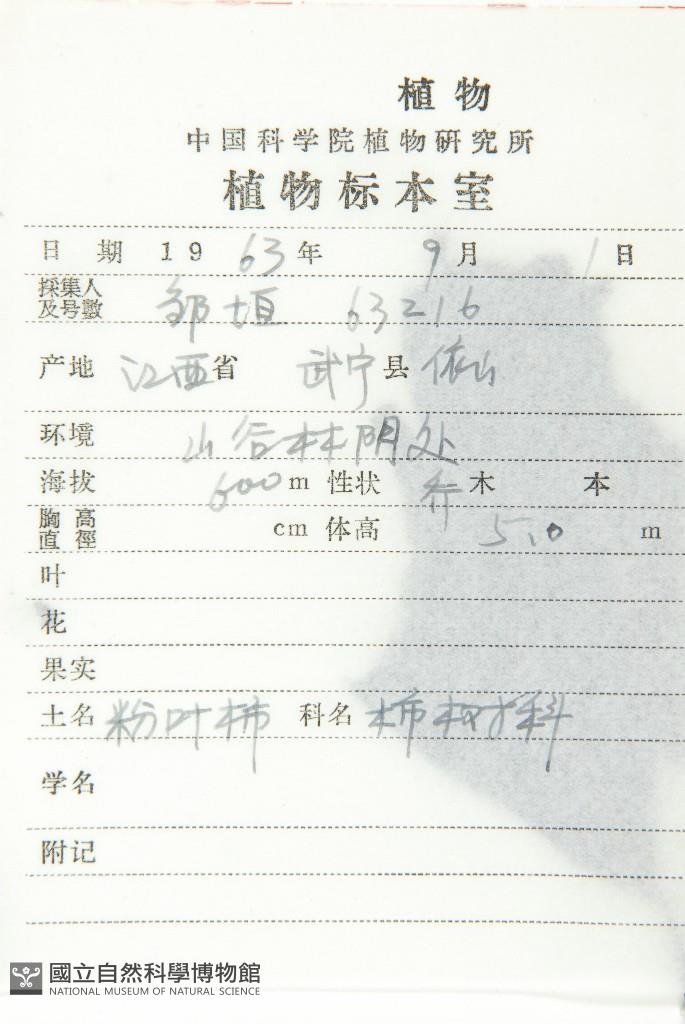 植物
中国科学院植物研究所
植物标本室
日期 1963年 9月 1日
採集人及号數 邹垣 63216
产地 江西省 武宁县 依山
环境 山谷林阴处
海拔 600 m 性状 乔木 本
胸高直徑 cm 体高 5.0 m
叶
花
果实
土名 粉叶柿 科名 柿树科
学名
附记
國立自然科學博物館
NATIONAL MUSEUM OF NATURAL SCIENCE